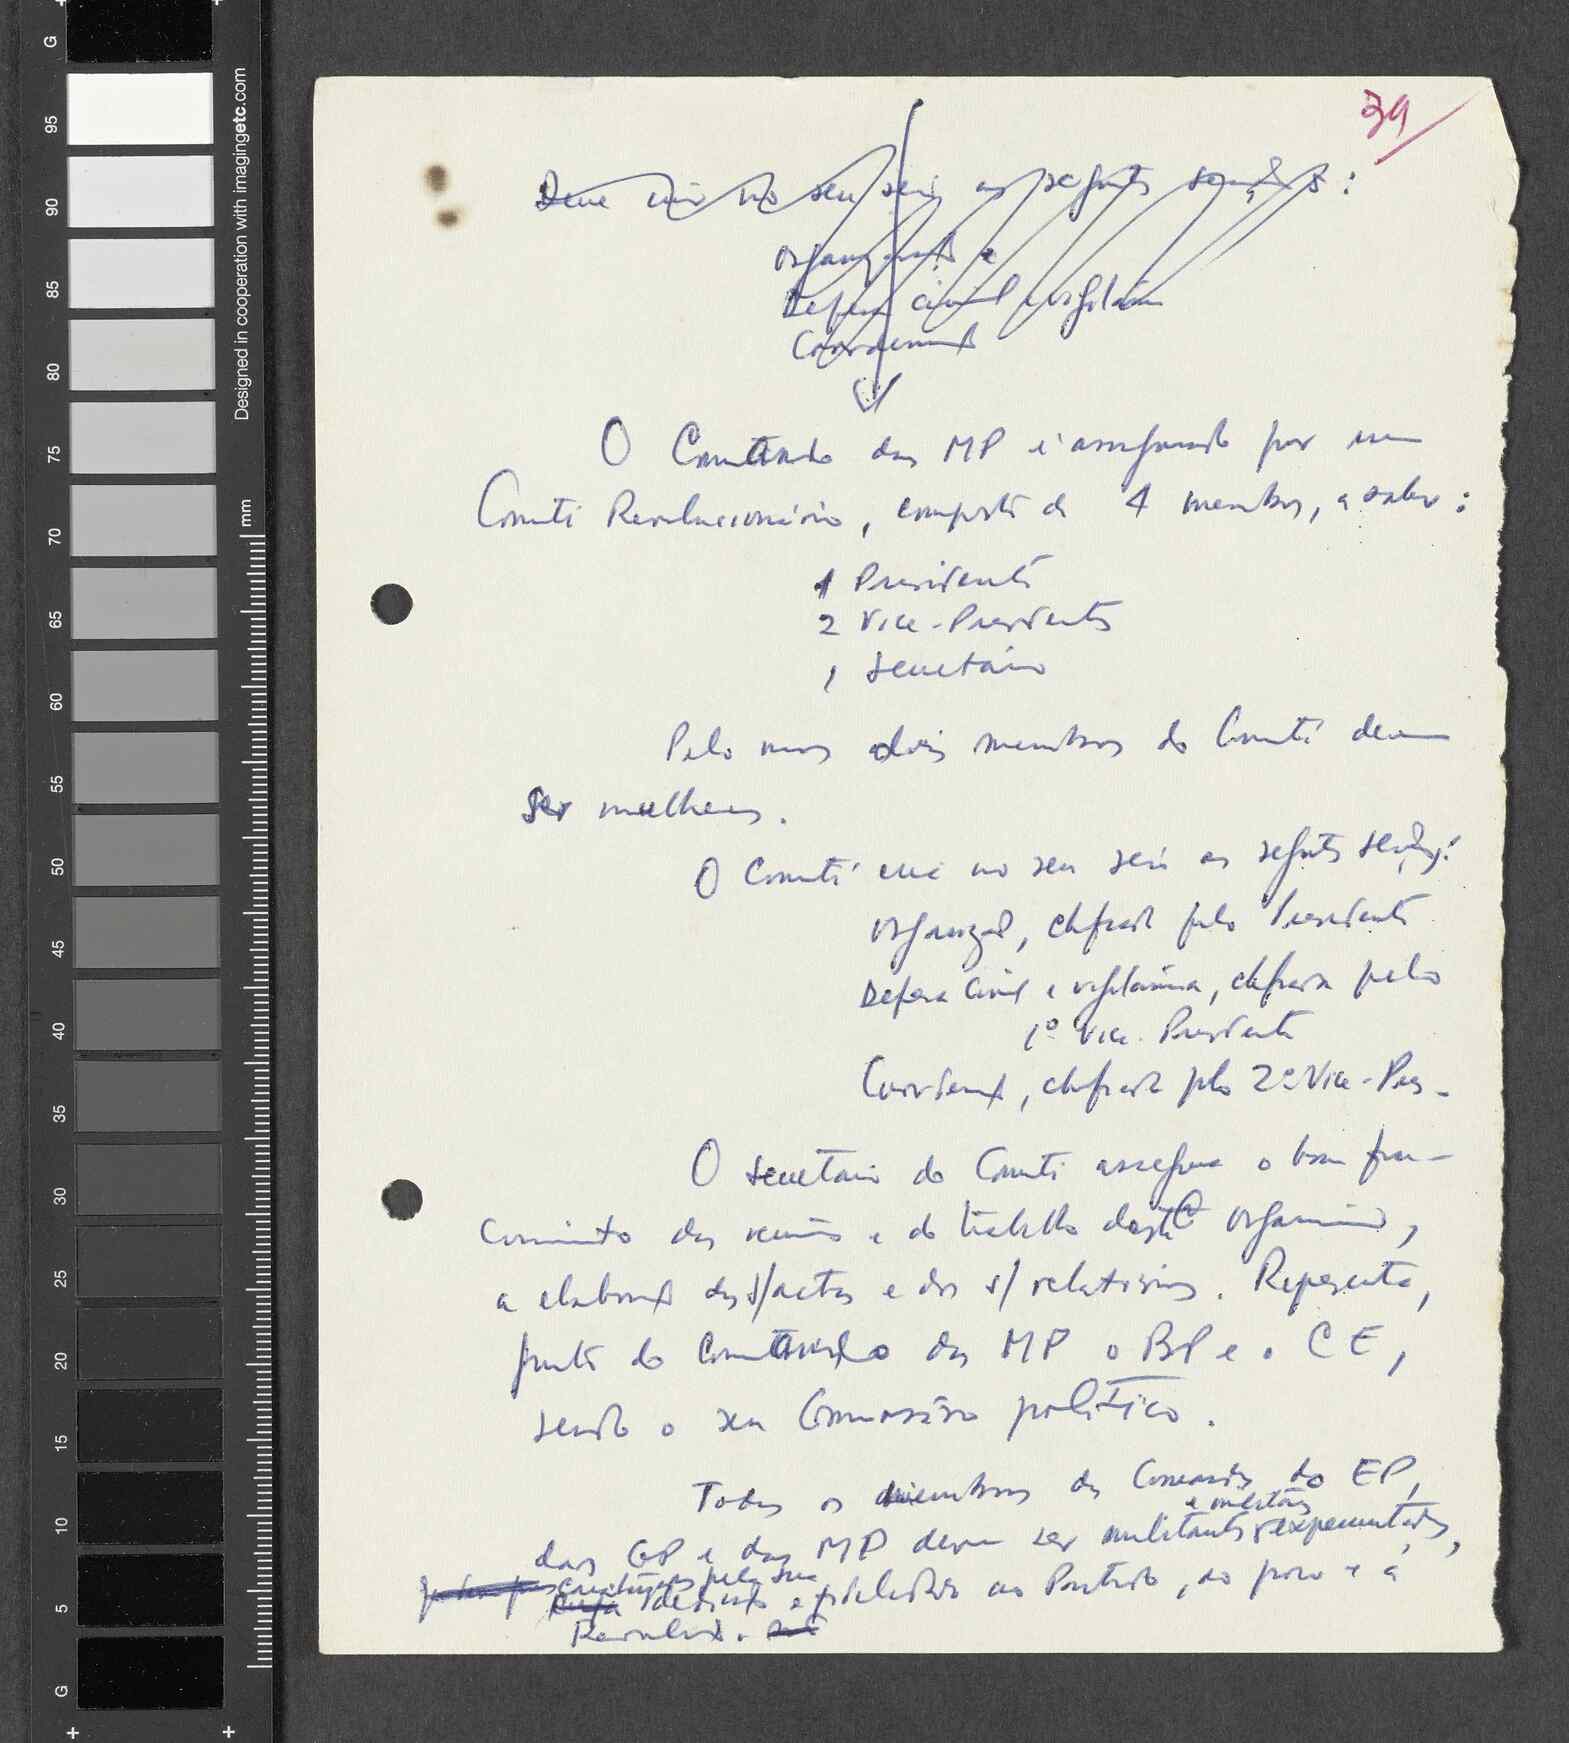 39
Deve criar no seu seio as segtes secções:
Organização e
Defesa civil e vigilância
Coordenação
O Comando das MP é assegurado por um
Comité Revolucionário, composto de 4 membros, a saber:
1 Presidente
2 Vice-Presidentes
1 Secretário
Pelo menos dois membros do Comité devem
ser mulheres.
O Comité cria no seu seio as segtes secções:
Organização, chefiada pelo Presidente
Defesa Civil e vigilância, chefiada pelo
1º Vice-Presidente
Coordenação, chefiada pelo 2º Vice-Pres.
O secretário do Comité assegura o bom fun-
cionamento das reuniões e do trabalho deste organismo,
a elaboração das s/actas e dos s/ relatórios. Representa,
junto do Comando das MP o BP e o CE,
sendo o seu Comissário político.
Todos os membros dos Comandos do EP,
e mestões
das GP e das MP devem ser militantes experimentados,
pela sua
dedicação e fidelidade ao Partido, ao povo e à
Revolução.
G
95
90
85
80
75
70
65
60
55
50
45
40
35
30
25
20
15
10
5
G
mm
Designed in cooperation with imagingetc.com